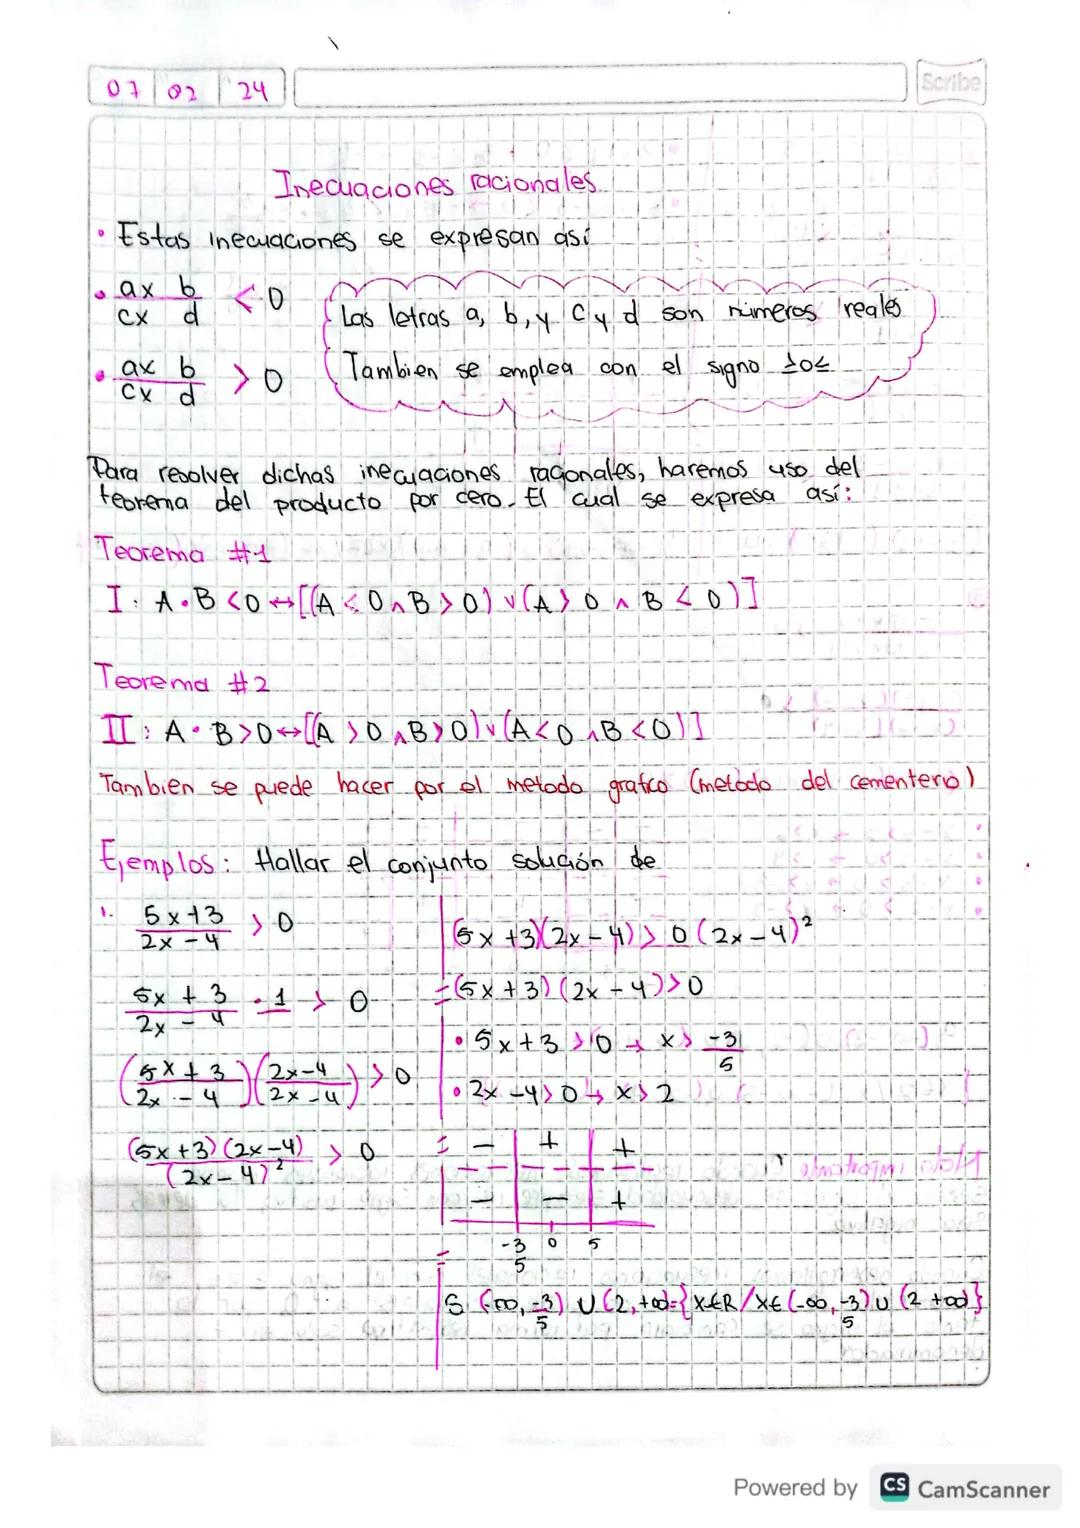 07 02 24
Scribe
Inecuaciones racionales.
• Estas inecuaciones se expresan así
• ax b / cx d < 0
• ax b / cx d > 0
Las letras a, b, y C y d son números reales
Tambien se emplea con el signo ≥ o ≤
Para resolver dichas inecuaciones racionales, haremos uso del
teorema del producto por cero. El cual se expresa así:
Teorema #1
I: A•B<0↔[(A<0∧B>0)∨(A>0∧B<0)]
Teorema #2
II: A•B>0↔[(A>0∧B>0)∨(A<0∧B<0)]
Tambien se puede hacer por el metodo grafico (metodo del cementerio)
Ejemplos: Hallar el conjunto solución de
1. 5x+3 / 2x-4 > 0
5x+3 / 2x-4 • 1 > 0
(5x+3 / 2x-4)(2x-4 / 2x-4) > 0
(5x+3)(2x-4) / (2x-4)² > 0
(5x+3)(2x-4) > 0(2x-4)²
=(5x+3)(2x-4)>0
• 5x+3>0→ x> -3/5
• 2x-4>0→ x>2
= - + +
- - +
-3/5 0 5
=
S (-∞, -3/5) ∪ (2,+∞)={x∈R/x∈(-∞, -3/5)∪(2 +∞)}
Powered by CS CamScanner